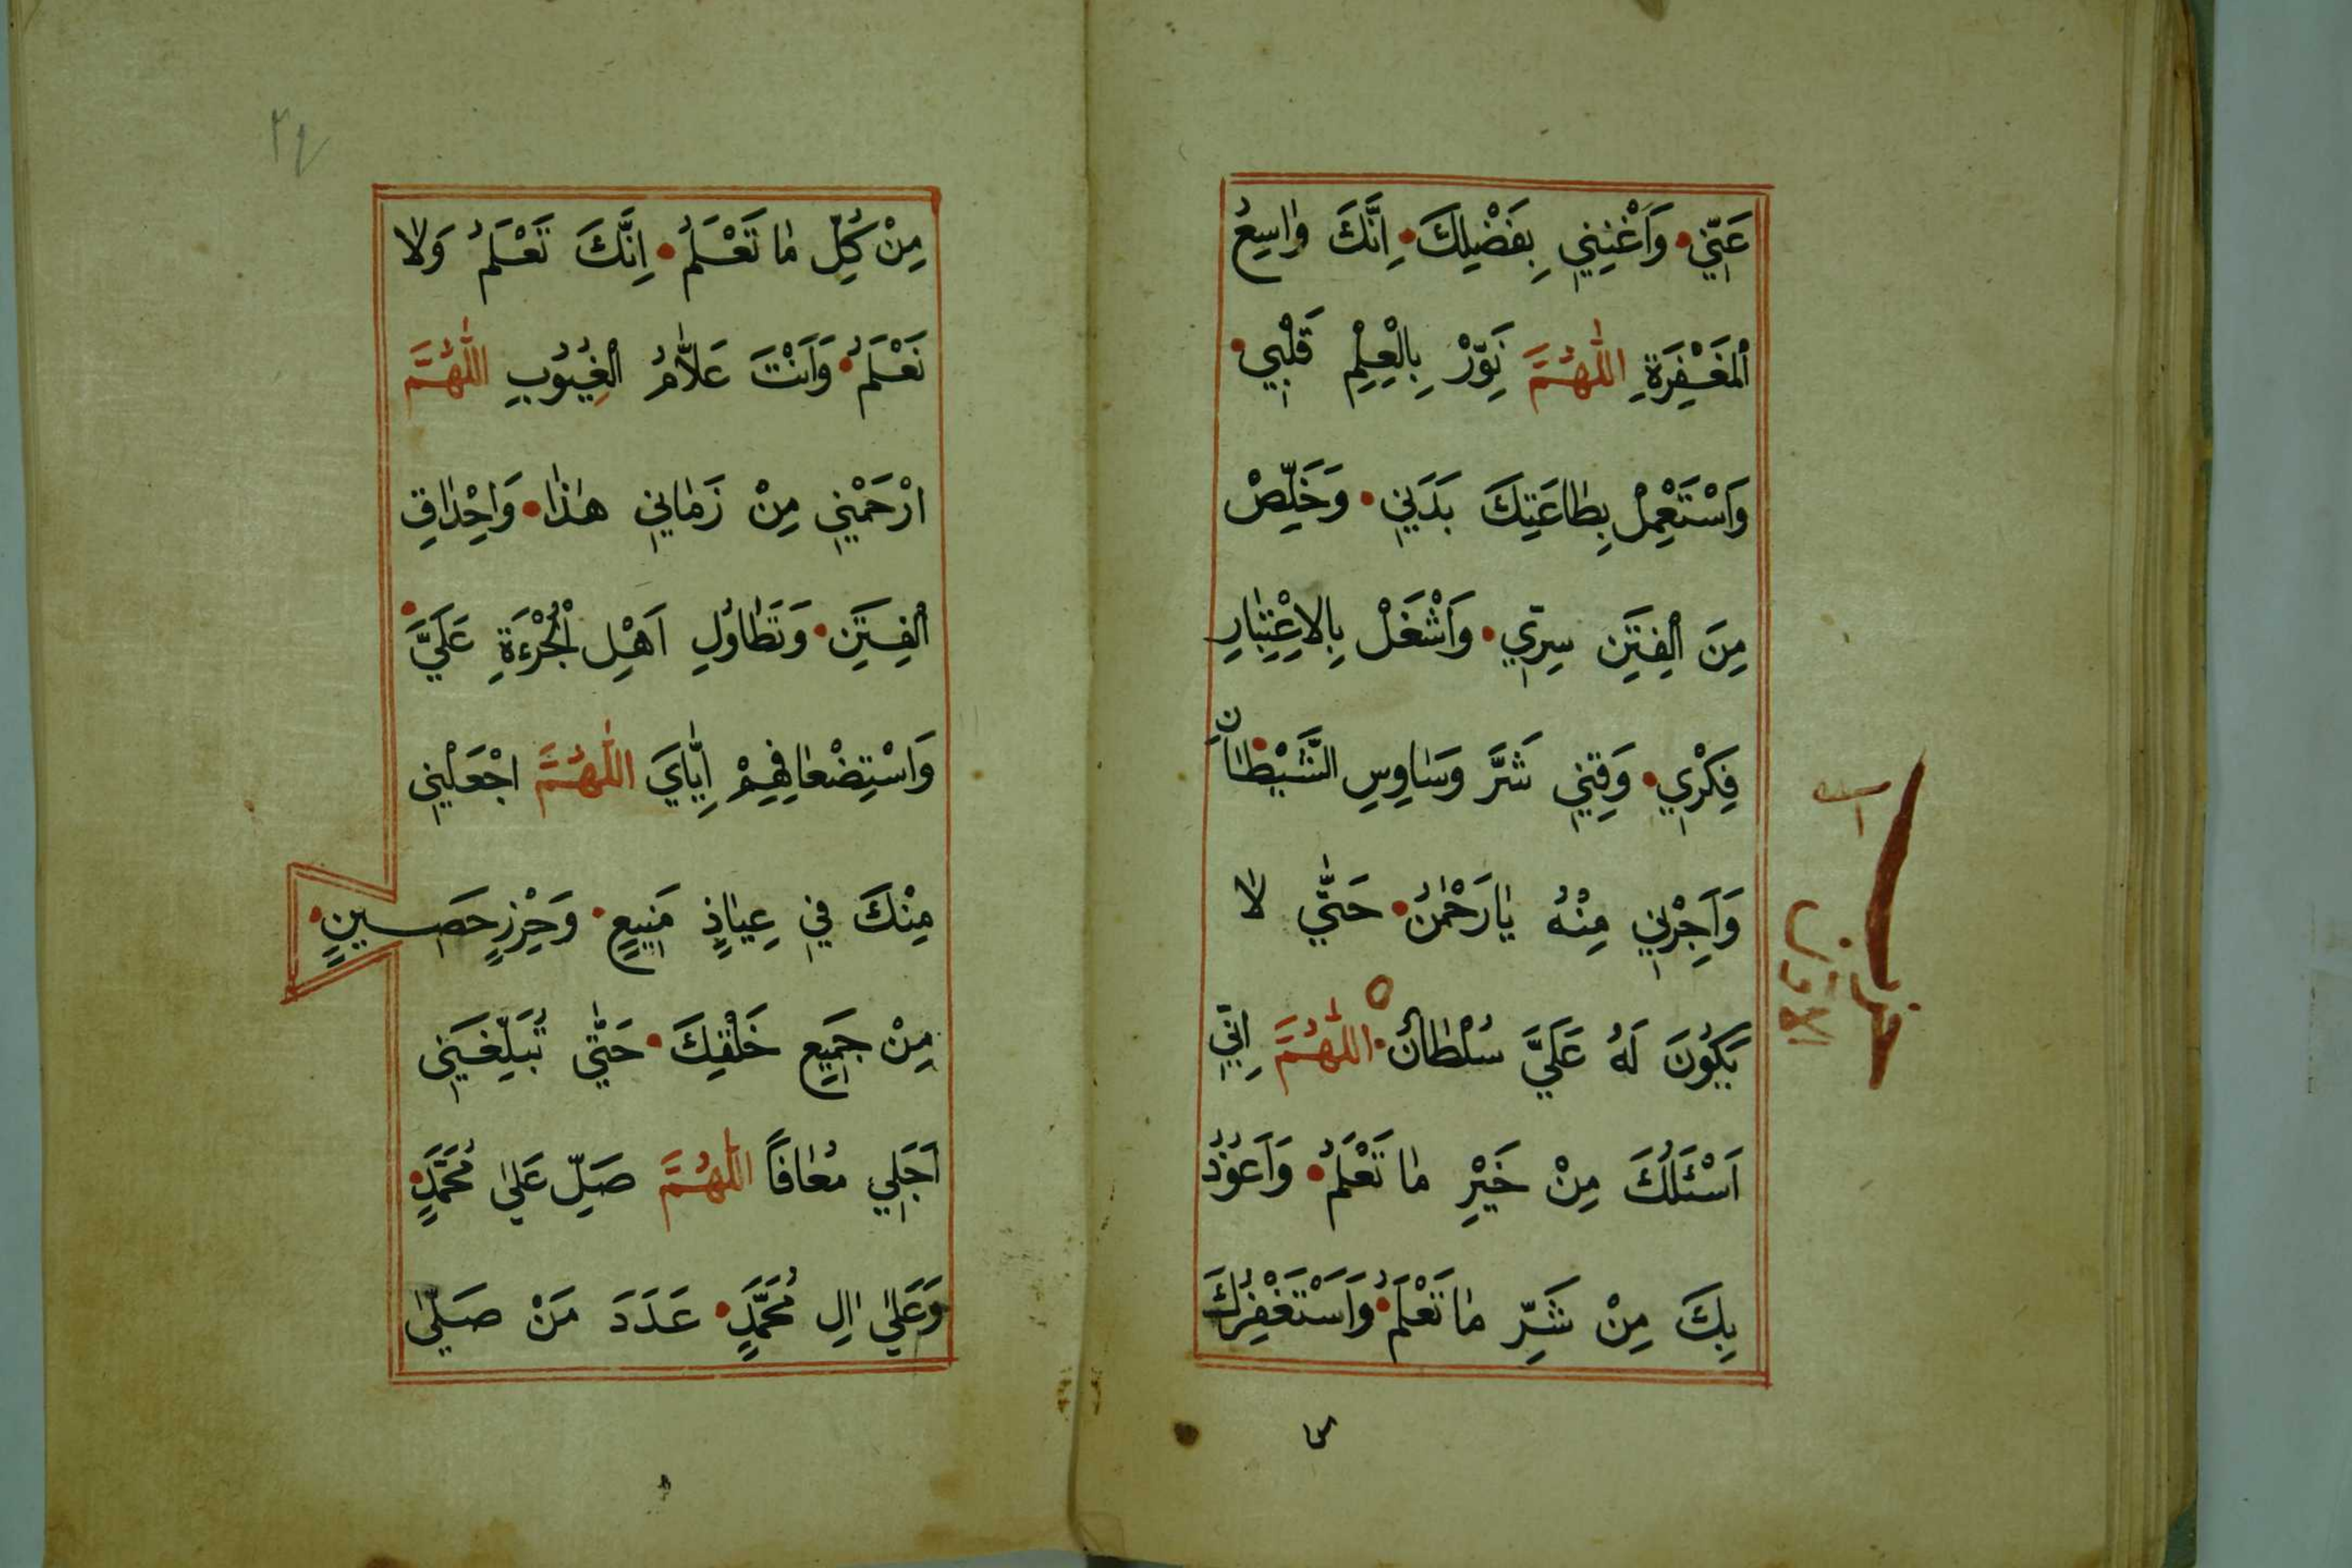 عَنّ۪ي وَاَغْنِن۪ي بِفَضْلِكَ اِنَّكَ وٰاسِعُ
الْمَغْفِرَةِ اَللّٰهُمَّ نَوِّرْ بِالْعِلْمِ قَلْب۪ي
وَاسْتَعْمِلْ بِطٰاعَتِكَ بَدَن۪ي وَخَلِّصْ
مِنَ الْفِتَنِ سِرّ۪ي وَاَشْغَلْ بِالْاِعْتِبٰارِ
فِكْر۪ي وَقِن۪ي شَرَّ وَسٰاوِسِ الشَّيْطٰانِ
وَاَجِرْن۪ي مِنْهُ يٰارَحْمٰنُ حَتّٰي لٰا
يَكُونَ لَهُ عَلَيَّ سُلْطٰانٌ اَللّٰهُمَّ اِنّ۪ي
اَسْئَلُكَ مِنْ خَيْرِ مٰا تَعْلَمُ وَاَعُوُذُ
بِكَ مِنْ شَرِّ مٰا تَعْلَمُ وَاَسْتَغْفِرُكَ
٣٤
مِنْ كُلِّ مٰا تَعْلَمُ اِنَّكَ تَعْلَمُ وَلٰا
نَعْلَمُ وَاَنْتَ عَلّٰامُ الْغُيُوُبِ اَللّٰهُمَّ
ارْحَمْن۪ي مِنْ زَمٰان۪ي هٰذٰا وَاِحْدٰاقِ
الْفِتَنِ وَتَطٰاوُلِ اَهْلِ الْجُرْءَةِ عَلَيَّ
وَاسْتِضْعٰافِهِمْ اِيّٰايَ اَللّٰهُمَّ اجْعَلْن۪ي
مِنْكَ ف۪ي عِيٰاذٍ مَن۪يعٍ وَحِرْزٍ حَص۪ينٍ
مِنْ جَم۪يعِ خَلْقِكَ حَتّٰي تُبَلِّغَن۪ي
اَجَل۪ي مُعٰافًا اَللّٰهُمَّ صَلِّ عَلٰي مُحَمَّدٍ
وَعَلٰي اٰلِ مُحَمَّدٍ عَدَدَ مَنْ صَلّٰي